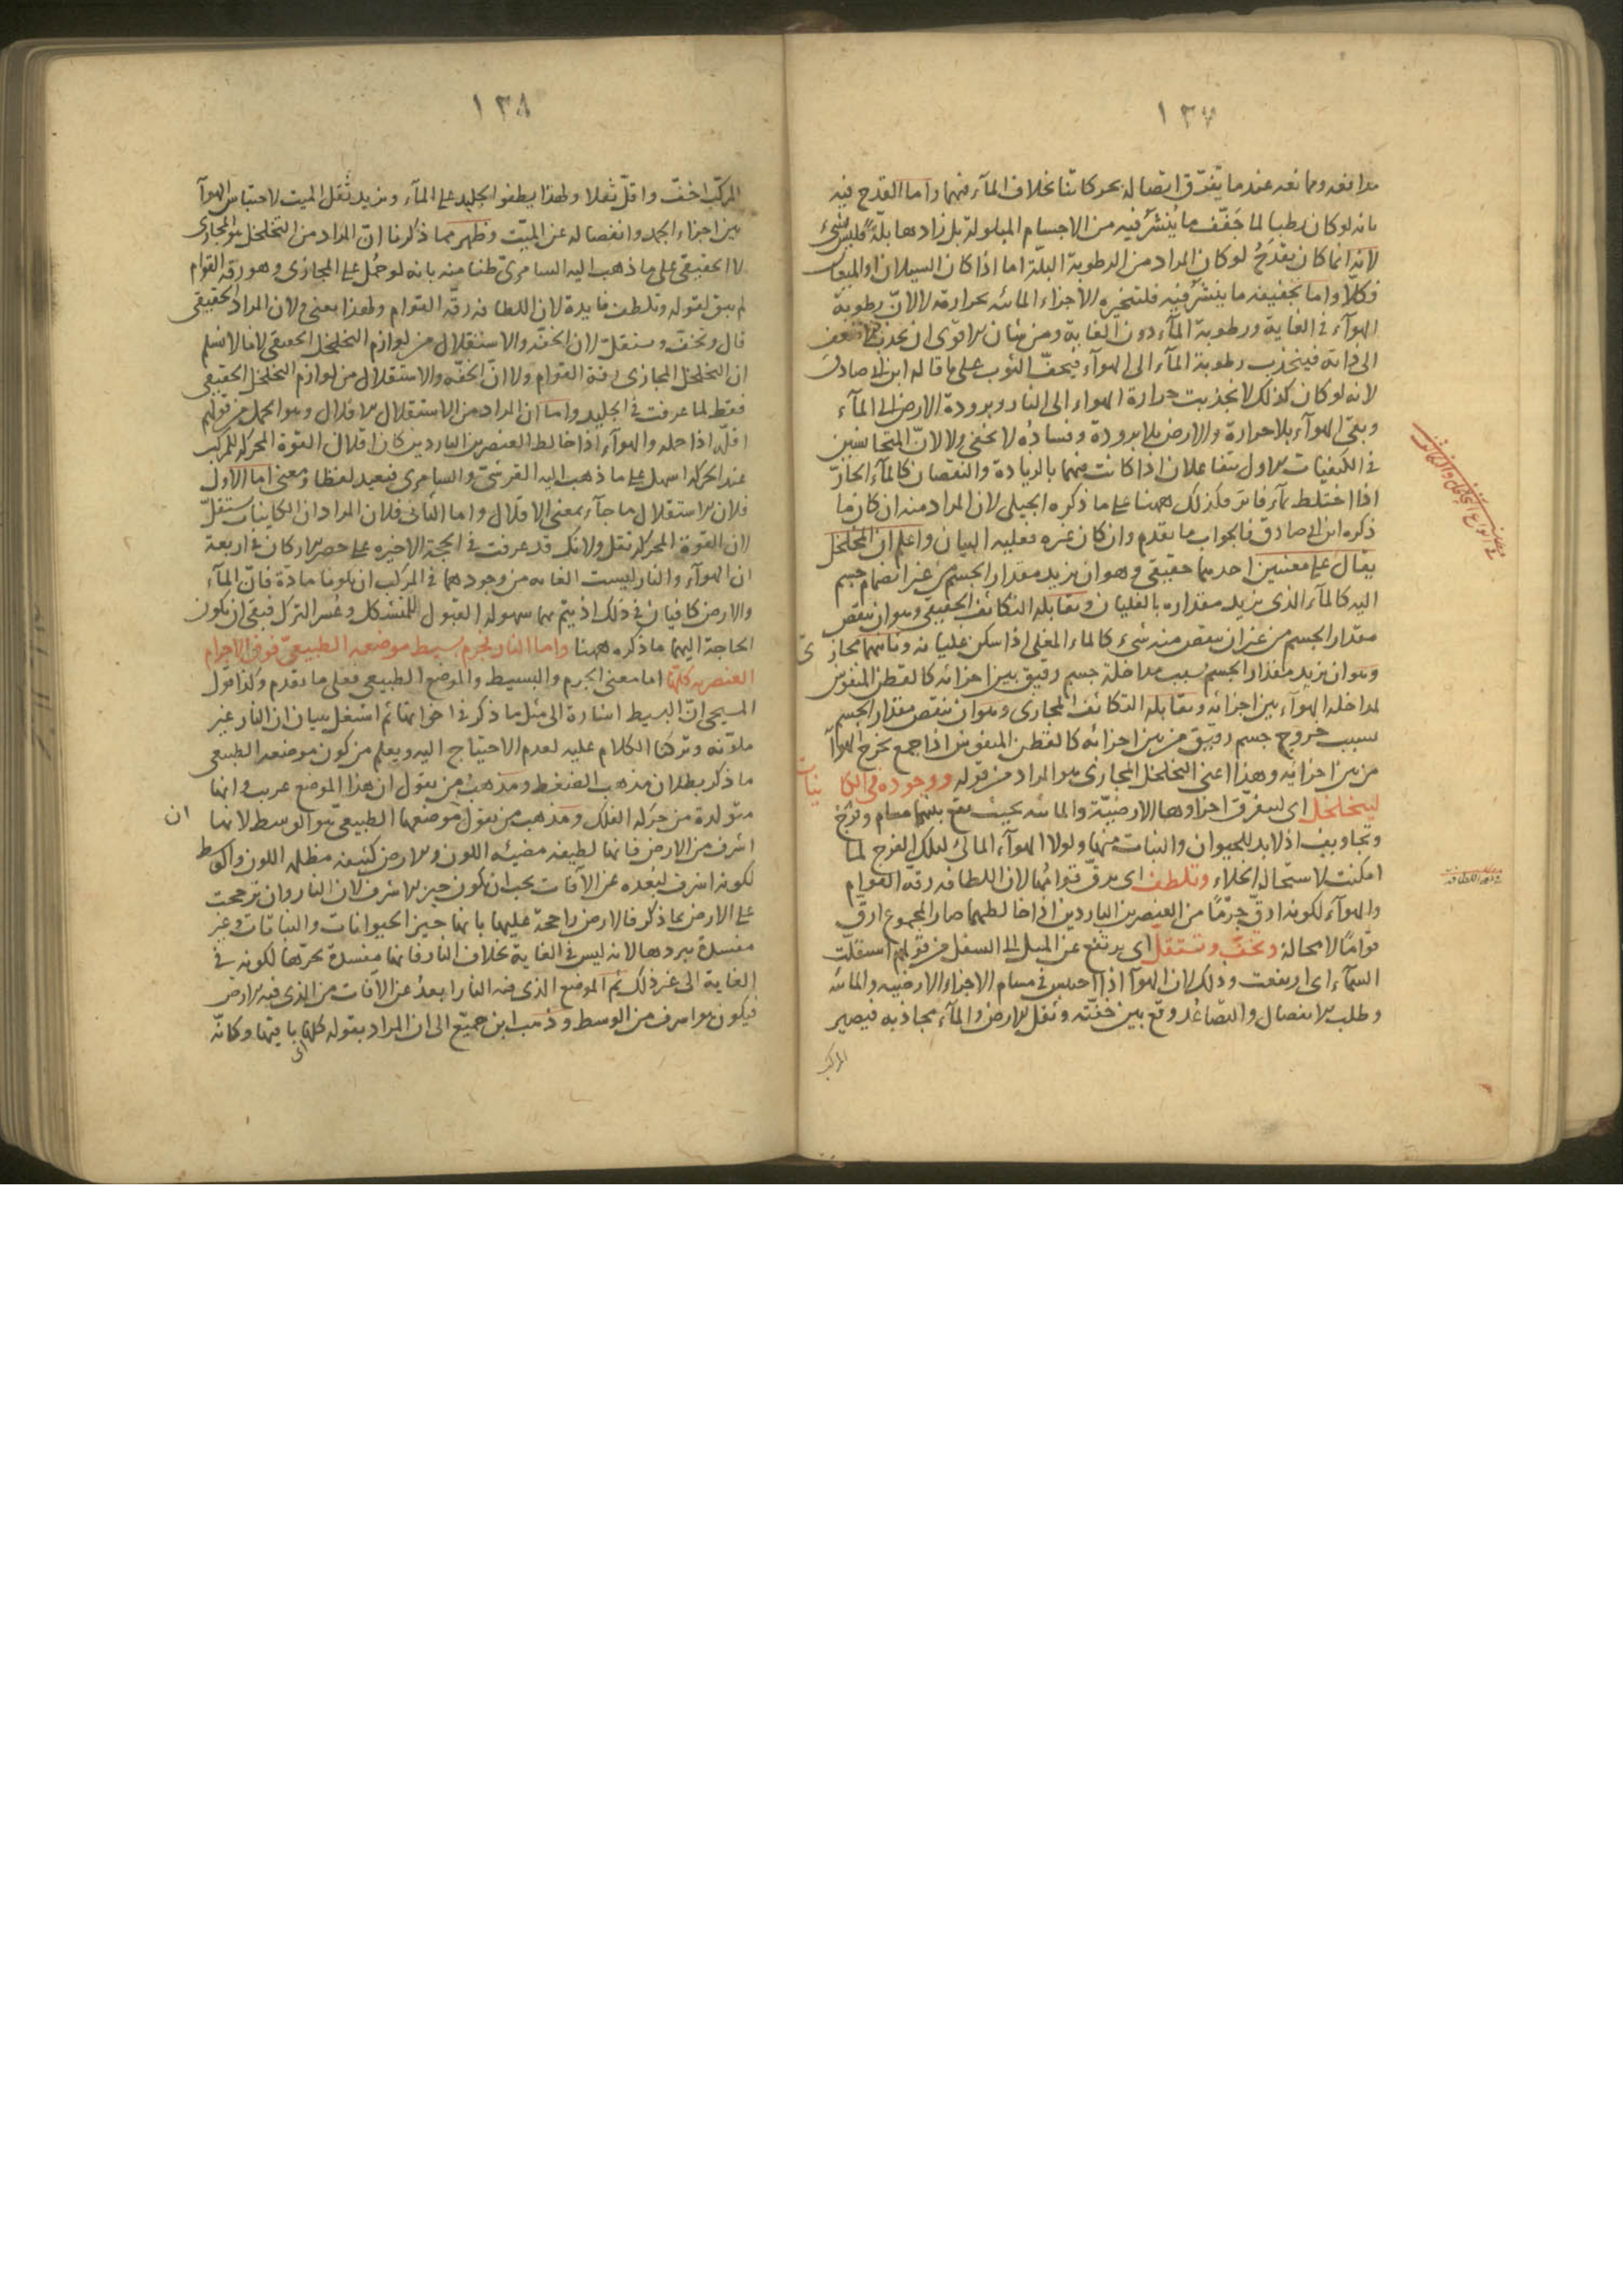 ١٣٧
مدافعه وممانعه عندما يتفرق اتصاله بحركاتنا بخلاف المآء فيهما واما القدح فيه
بانه لو كان رطبا لما جفف ما ينشر فيه من الاجسام المبلولة بل زادها بلة فليس بشىء
لانه انما كان يقدح لو كان المراد من الرطوبة البلة اما اذا كان السيلان او الميعان
فكلا واما تجفيفه ما ينشر فيه فلتبخيره الاجزاء المائيه بحرارته لا لان رطوبة
الهوآء فى الغاية ورطوبة المآء دون الغاية ومن شان الاقوى ان يجذب الاضعف
الى ذاته فينجذب رطوبة المآء الى الهوآء فيجف الثوب على ما قاله ابن ابى صادق
لانه لو كان كذلك لانجذبت حرارة الهواء الى النار وبرودة الارض الى المآء
وبقى الهوآء بلا حرارة والارض بلا برودة وفساده لا يخفى ولا لان المتجانسين
فى الكيفيات الاول يتفاعلان اذا كانت فيهما بالزيادة والنقصان كالمآء الحار
اذا اختلط بمآء فاتر فكذلك ههنا على ما ذكره الجيلى لان المراد منه ان كان ما
ذكره ابن ابى صادق فالجواب ما تقدم وان كان غيره فعليه البيان واعلم ان التخلخل
يقال على معنيين احدهما حقيقى وهو ان يزيد مقدار الجسم من غير انضمام جسم
اليه كالمآء الذى يزيد مقداره بالغليان ويقابله التكاثف الحقيقى وهو ان ينقص
مقدار الجسم من غير ان ينقص منه شىء كالماء المغلى اذا سكن غليانه وثانيهما مجازى
وهو ان يزيد مقدار الجسم بسبب مداخلة جسم رقيق بين اجزائه كالقطن المنفوش
لمداخلة الهوآء بين اجزائه ويقابله التكاثف المجازى وهو ان ينقص مقدار الجسم
بسبب خروج جسم رقيق من بين اجزائه كالقطن المنفوش اذا جمع بخرج الهوآء
من بين اجزائه وهذا اعنى التخلخل المجازى هو المراد من قوله ووجوده فى الكاينات
ليتخلخل اى ليتفرق اجزاوها الارضية والمائيه بحيث يقع بينهما مسام وفرج
وتجاويف اذ لا بد للحيوان والنبات منها ولولا الهوآء المالئ لتلك الفرج لما
امكنت لاستحالة الخلاء وتلطف اى يرق قوامها لان اللطافه رقة القوام
والهوآء لكونه ادق جرما من العنصرين الباردين اذا خالطهما صار المجموع ارق
قواما لا محالة وتخف وتستقل اى يرتفع عن الميل الى السفل من قولهم استقلت
السمآء اى ارتفعت وذلك لان الهوآ اذا احتبس فى مسام الاجزاء الارضيه والمائيه
وطلب الانفصال والتصاعد وقع بين خفته وثقل الارض والمآء مجاذبه فيصير
المركب
١٣٨
المركب اخف واقل ثقلا ولهذا يطفو الجليد على المآء ويزيد ثقل الميت لاحتباس الهوآ
بين اجزاء الجمد وانفصاله عن الميت وظهر مما ذكرنا ان المراد من التخلخل هو المجازى
لا الحقيقى على ما ذهب اليه السامرى ظنا منه بانه لو حمل على المجازى وهو رقة القوام
لم يبق لقوله وتلطف فايدة لان اللطافه رقة القوام ولهذا بعنى ولان المراد الحقيقى
قال وتخف وتستقل لان الخفه والاستقلال من لوازم التخلخل الحقيقى لانا لا نسلم
ان التخلخل المجازى رقة القوام ولا ان الخفه والاستقلال من لوازم التخلخل الحقيقى
فقط لما عرفت فى الجليد واما ان المراد من الاستقلال الاقلال وهو الحمل من قولهم
اقله اذا حمله والهوآء اذا خالط العنصرين الباردين كان اقلال القوة المحركه للمركب
عند الحركه اسهل على ما ذهب اليه القرشى والسامرى فبعيد لفظا ومعنى اما الاول
فلان الاستقلال ما جآء بمعنى الاقلال واما الثانى فلان المراد ان الكاينات تستقل
لان القوة المحركه تقل ولانك قد عرفت فى الحجة الاخيره على حصر الاركان فى اربعة
ان الهوآء والنار ليست الغايه من وجودهما فى المركب ان يكونا مادة فان المآء
والارض كافيان فى ذلك اذ يتم بهما سهولة القبول للتشكل وعسر الترك فبقى ان يكون
الحاجة اليهما ما ذكره ههنا واما النار فجرم بسيط موضعه الطبيعى فوق الاجرام
العنصريه كلها اما معنى الجرم والبسيط والموضع الطبيعى فعلى ما تقدم وكذا قول
المسيحى ان البسيط اشارة الى مثل ما ذكر فى اخواتها ثم اشتغل ببيان ان النار غير
ملونه وتركها الكلام عليه لعدم الاحتياج اليه ويعلم من كون موضعه الطبيعى
ما ذكر بطلان مذهب الضغط ومذهب من يقول ان هذا الموضع غريب وانها
متولدة من حركة الفلك ومذهب من يقول موضعها الطبيعى هو الوسط لانها
اشرف من الارض فانها لطيفه مضيئه اللون والارض كثيفه مظلمه اللون والوسط
لكونه اشرف لبعده عن الآفات يجب ان يكون حيز الاشرف لان النار وان ترجحت
على الارض بما ذكر فالارض راجحة عليها بانها حيز الحيوانات والنباتات وغير
مفسدة ببردها لانه ليس فى الغاية بخلاف النار فانها مفسدة بحرها لكونه فى
الغاية الى غير ذلك ثم الموضع الذى فيه النار ابعد عن الآفات من الذى فيه الارض
فيكون هو اشرف من الوسط وذهب ابن جميع الى ان المراد بقوله كلها باقيها وكانه
ان